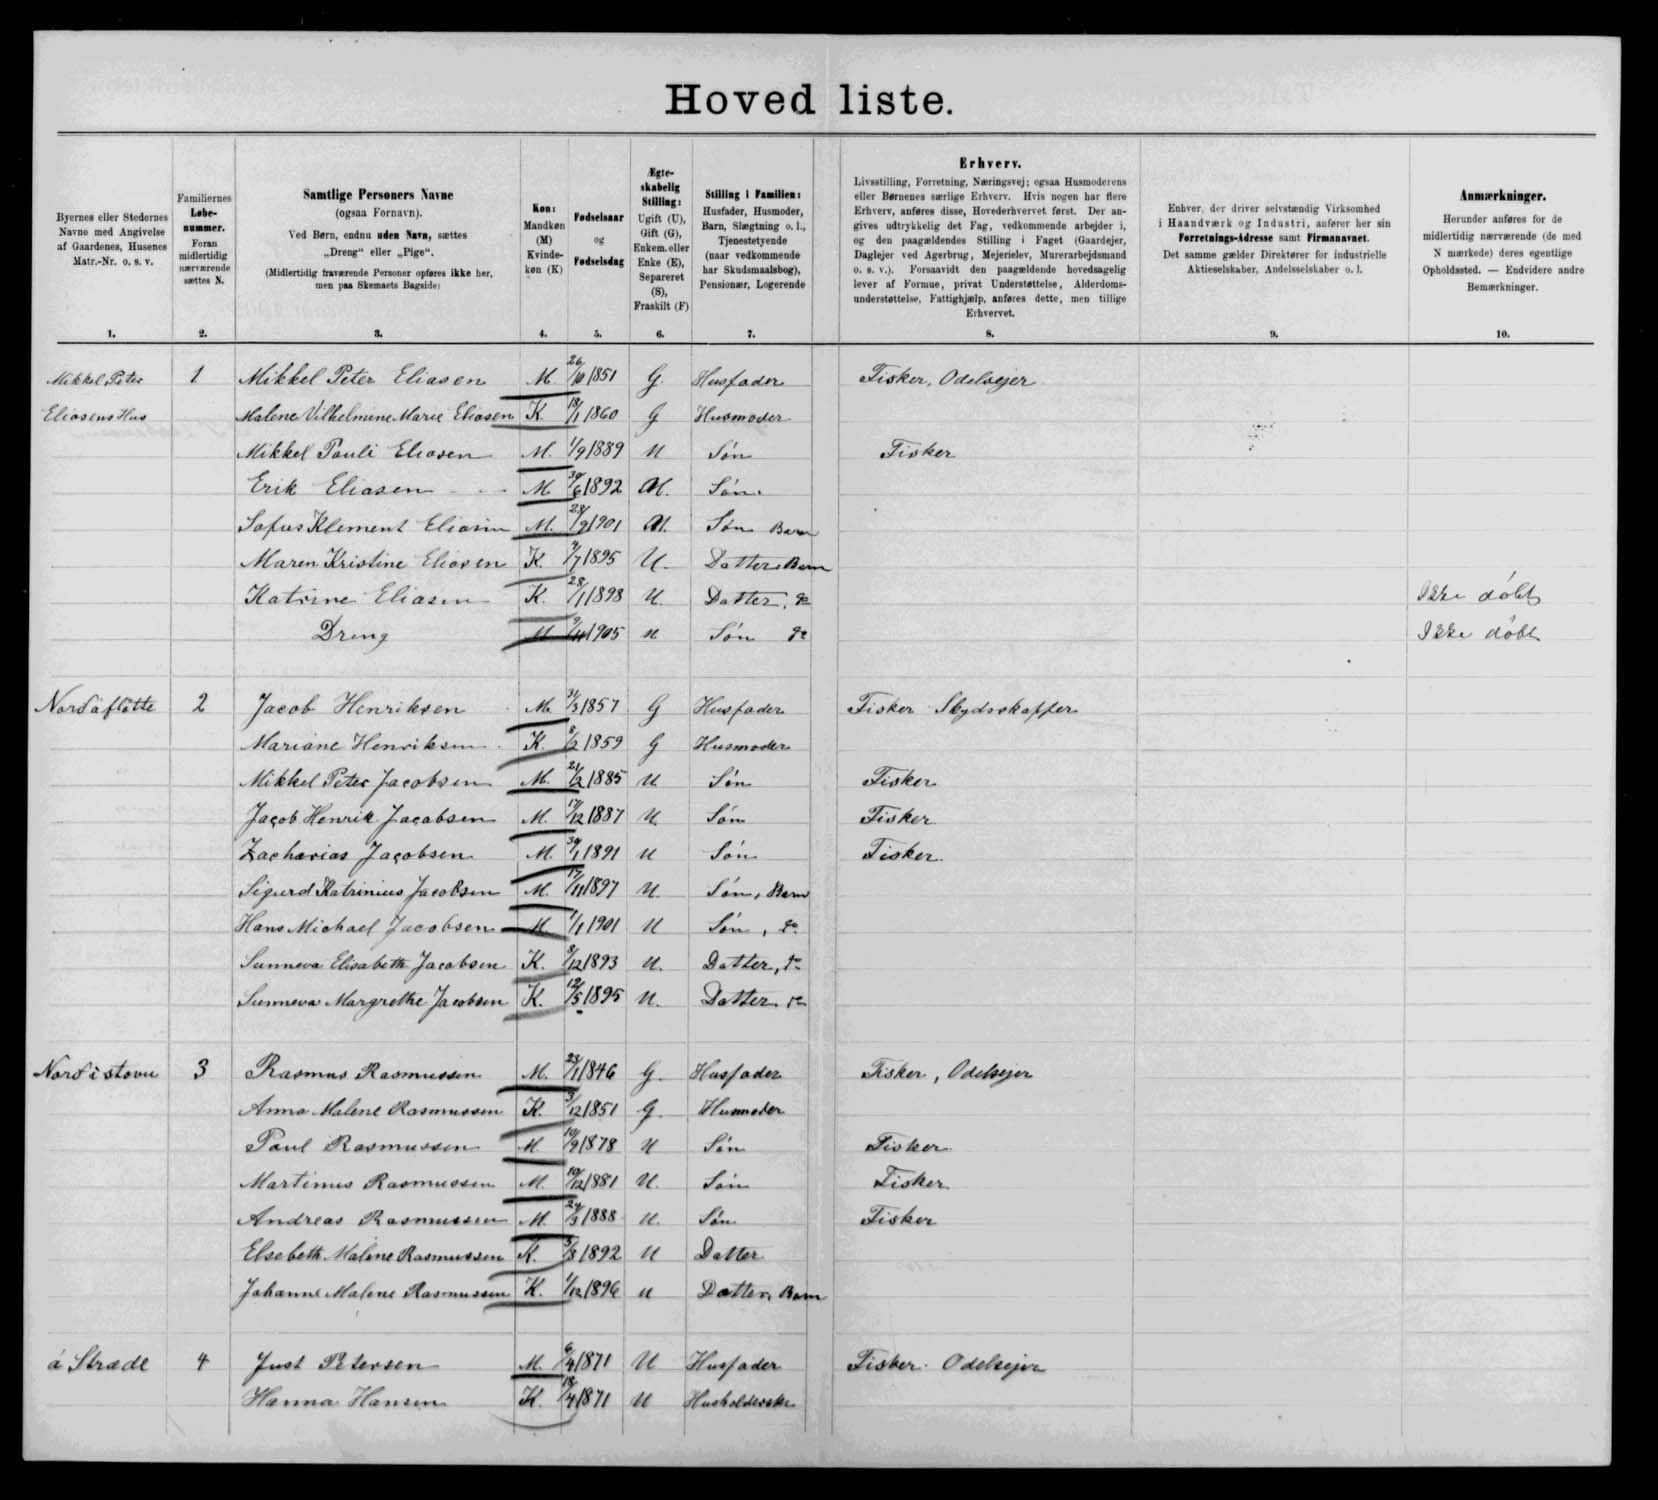 Hoved liste.
Byernes eller Stedernes Navne med Angivelse af Gaardenes, Husenes Matr.-Nr. o. s. v.
Familiernes Løbenummer. Foran midlertidig nærværende sættes N.
Samtlige Personers Navne (ogsaa Fornavn). Ved Børn, endnu uden Navn, sættes „Dreng“ eller „Pige“. (Midlertidig fraværende Personer opføres ikke her, men paa Skemaets Bagside)
Køn: Mandkøn (M) Kvindekøn (K)
Fødselsaar og Fødselsdag
Ægteskabelig Stilling: Ugift (U), Gift (G), Enkem. eller Enke (E), Separeret (S), Fraskilt (F)
Stilling i Familien: Husfader, Husmoder, Barn, Slægtning o. l., Tjenestetyende (naar vedkommende har Skudsmaalsbog), Pensionær, Logerende
Erhverv.
Livsstilling, Forretning, Næringsvej; ogsaa Husmoderens
eller Børnenes særlige Erhverv. Hvis nogen har flere
Erhverv, anføres disse, Hovederhvervet først. Der an-
gives udtrykkelig det Fag, vedkommende arbejder i,
og den paagældendes Stilling i Faget (Gaardejer,
Daglejer ved Agerbrug, Mejerielev, Murerarbejdsmand
o. s. v.). Forsaavidt den paagældende hovedsagelig
lever af Formue, privat Understøttelse, Alderdoms-
understøttelse, Fattighjælp, anføres dette, men tillige
Erhvervet.
Enhver, der driver selvstændig Virksomhed
i Haandværk og Industri, anfører her sin
Forretnings-Adresse samt Firmanavnet.
Det samme gælder Direktører for industrielle
Aktieselskaber, Andelsselskaber o. l.
Anmærkninger.
Herunder anføres for de
midlertidig nærværende (de med
N mærkede) deres egentlige
Opholdssted. — Endvidere andre
Bemærkninger.
1. 2. 3. 4. 5. 6. 7. 8. 9. 10.
Mikkel Peter 1 Mikkel Peter Eliasen M. 26/10 1851 G. Husfader Fisker, Odelsejer
Eliasens Hus Malene Vilhelmine Marie Eliasen K. 18/1 1860 G Husmoder
Mikkel Pauli Eliasen M. 1/9 1889 U Søn Fisker
Erik Eliasen M. 30/6 1892 U. Søn
Sofus Klement Eliasen M. 28/9 1901 U. Søn Barn
Maren Kristine Eliasen K. /7 1895 U. Datter Barn
Katrine Eliasen K. 28/1 1898 U. Datter, do Ikke døbt
Dreng M 9/11 1905 U Søn do Ikke døbt
Norðáfløtte 2 Jacob Henriksen M. 31/3 1857 G Husfader Fisker Skydsskaffer
Mariane Henriksen K. 8/2 1859 G Husmoder
Mikkel Peter Jacobsen M. 21/2 1885 U Søn Fisker
Jacob Henrik Jacobsen M. 17/12 1887 U. Søn Fisker
Zacharias Jacobsen M. 30/1 1891 U Søn Fisker
Sigurd Katrinius Jacobsen M. 17/11 1897 U. Søn, Barn
Hans Michael Jacobsen M. 1/1 1901 U Søn, do
Sunneva Elisabeth Jacobsen K. 8/12 1893 U. Datter, do
Sunneva Margrethe Jacobsen K. 12/5 1895 U. Datter do
Norðistovu 3 Rasmus Rasmussen M. 23/1 1846 G. Husfader Fisker, Odelsejer
Anna Malene Rasmussen K. 3/12 1851 G. Husmoder
Paul Rasmussen M 10/9 1878 U Søn Fisker
Martinus Rasmussen M. 10/12 1881 U. Søn Fisker
Andreas Rasmussen M. 24/3 1888 U. Søn Fisker
Elsebeth Malene Rasmussen K. 5/8 1892 U Datter
Johanne Malene Rasmussen K. 1/12 1896 U Datter, Barn
á Stræde 4 Just Petersen M. 6/4 1871 U Husfader Fisker. Odelsejer
Hanna Hansen K. 18/4 1871 U Husholderske